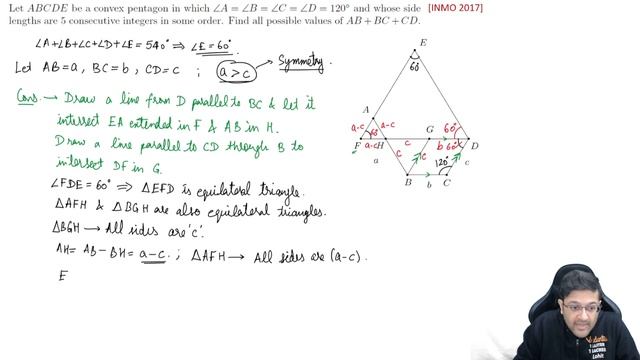 Let ABCDE be a convex pentagon in which ∠A = ∠B = ∠C = ∠D = 120° and whose side [INMO 2017]
lengths are 5 consecutive integers in some order. Find all possible values of AB + BC + CD.
∠A+∠B+∠C+∠D+∠E = 540° ⇒ ∠E = 60°
Let AB=a, BC=b, CD=c ; a>c Symmetry.
Cons. → Draw a line from D parallel to BC & let it
intersect EA extended in F & AB in H.
Draw a line parallel to CD through B to
intersect DF in G.
∠FDE = 60° ⇒ △EFD is equilateral triangle.
△AFH & △BGH are also equilateral triangles.
△BGH → All sides are 'c'.
AH = AB − BH = a−c. ; △AFH → All sides are (a−c).
E
E
60
A
a-c
60
a-c
G
60°
F
a-c
H
c
b
60°
D
a
c
c
120°
c
B
b
C
Vedantu